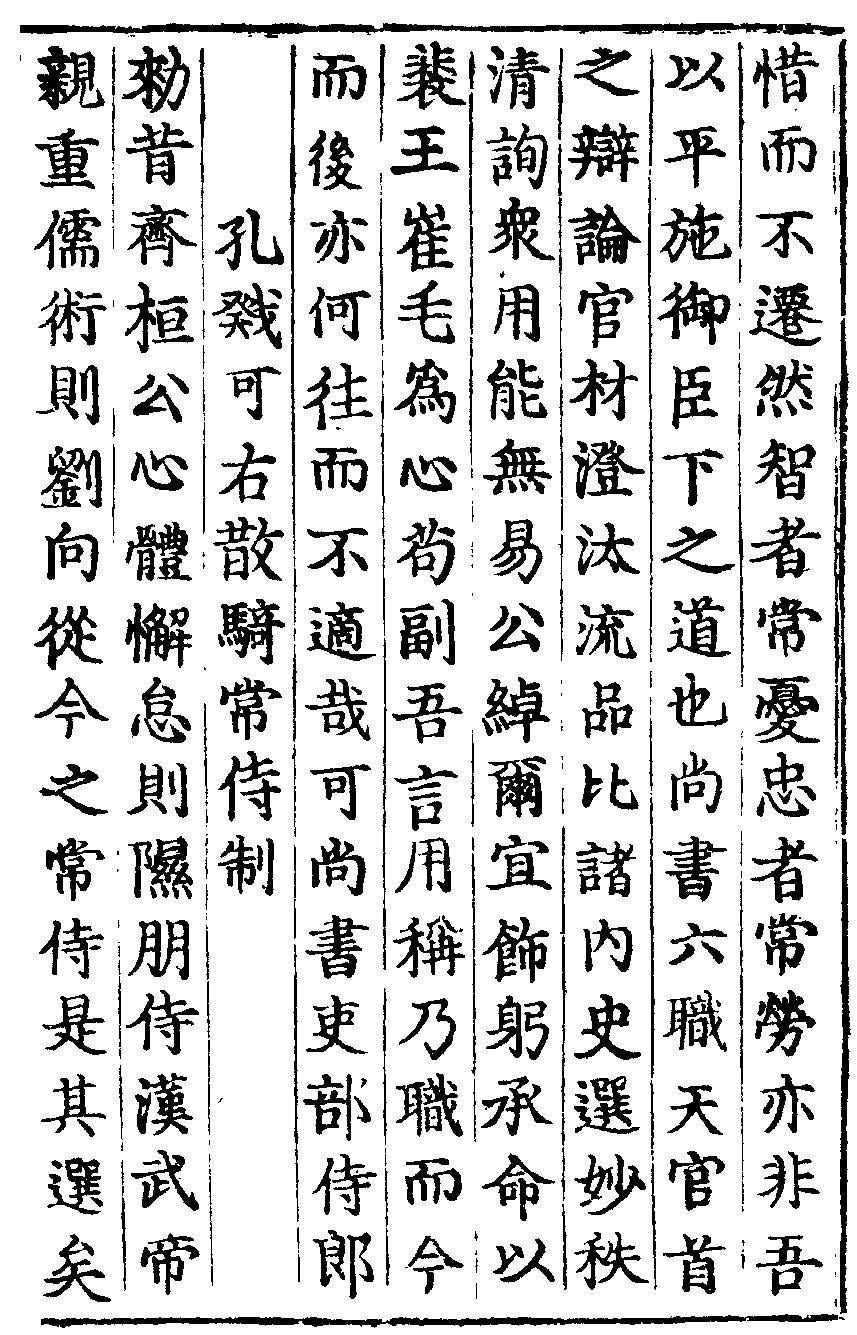 惜而不遷然智者常憂忠者常勞亦非吾
以平施御臣下之道也尚書六職天官首
之辯論官材澄汰流品比諸内史選妙秩
清詢衆用能無易公綽爾宜飾躬承命以
裴王崔毛爲心苟副吾言用稱乃職而今
而後亦何往而不適哉可尚書吏部侍郎
孔戣可右散騎常侍制
勑昔齊桓公心體懈怠則隰朋侍漢武帝
親重儒術則劉向從今之常侍是其選矣